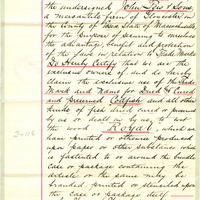 the undersigned John Pew & Sons
a mercantile firm of Gloucester in
the County of Essex State of Massachusetts
for the purpose of seeming to ourselves
the advantage, benefit and protection
of the laws in relation to Trade Marks
Do Hereby Certify that we are the
exclusive owners of and do hereby
claim the exclusive use of the Trade
Mark and Name for Dried & Cured
and preserved Codfish and all other
kinds of fish dried cured or preserved
by us or dealt in by us to wit
the word "Royal", which we
have printed or otherwise produced
upon paper or other substance which
is fastened to or around the bundle
or package containing the
article or the same may be
branded printed or stenciled upon
the case or package itself